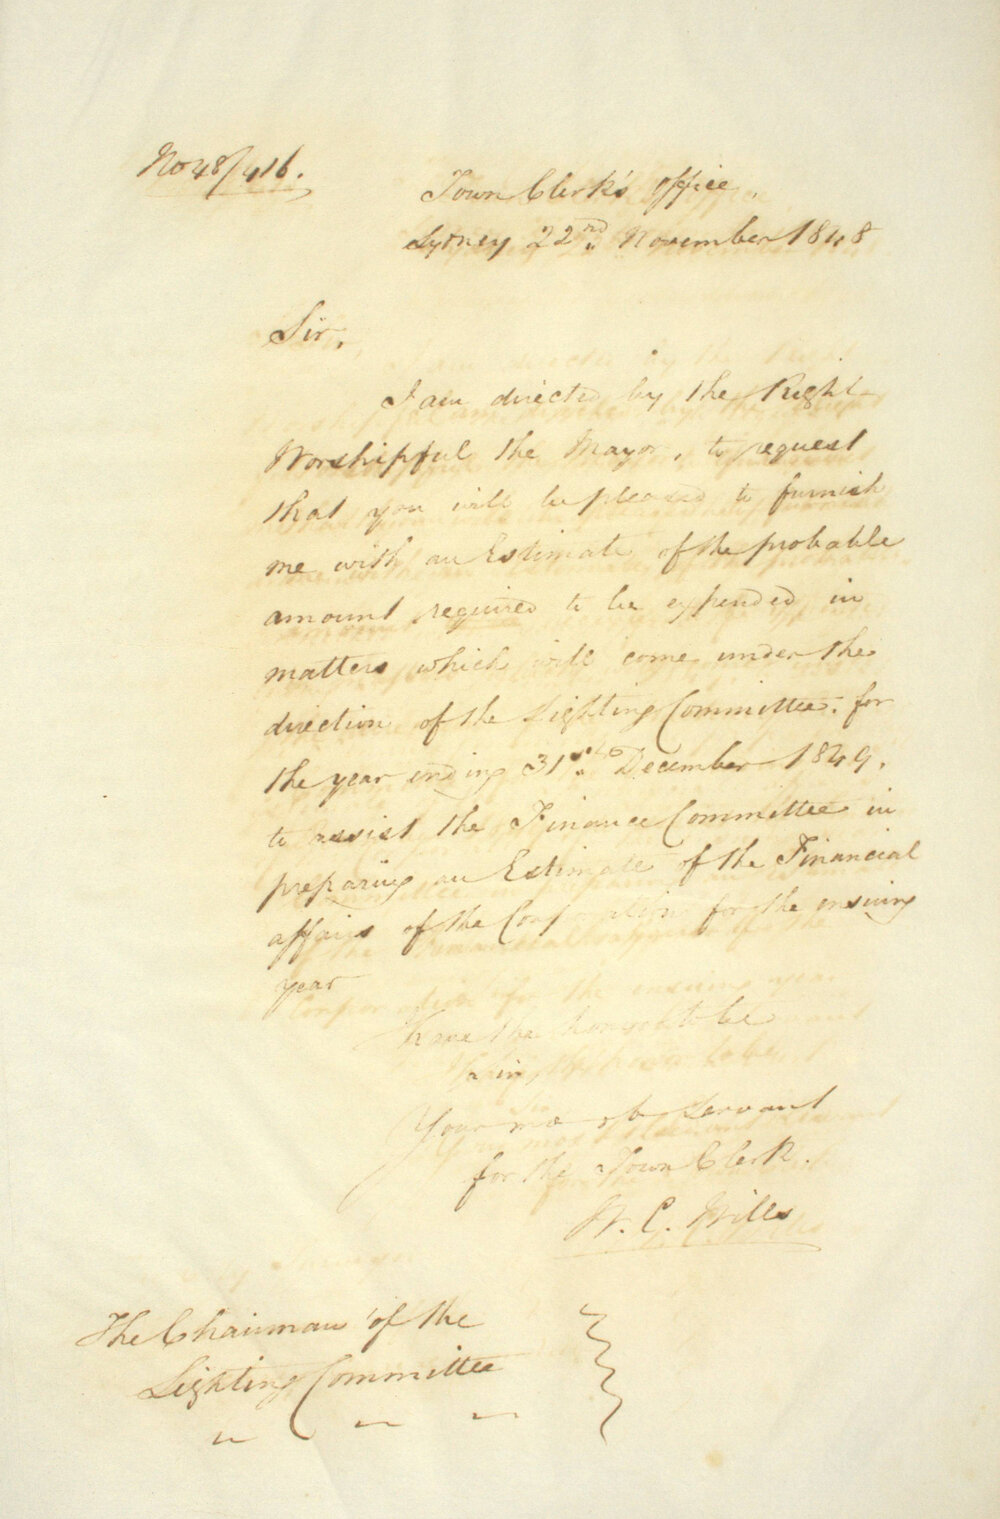 No 48/416.
Town Clerk's office,
Sydney 22nd. November 1848
Sir,
I am directed by the Right
Worshipful the Mayor, to request
that you will be pleased to furnish
me with an Estimate of the probable
amount required to be expended in
matters which will come under the
direction of the Lighting Committee, for
the year ending 31st. December 1849,
to assist the Finance Committee in
preparing an Estimate of the Financial
affairs of the Corporation for the ensuing
year
have the honor to be
Your ob Servant
for the Town Clerk.
W. C. Wills
The Chairman of the
Lighting Committee